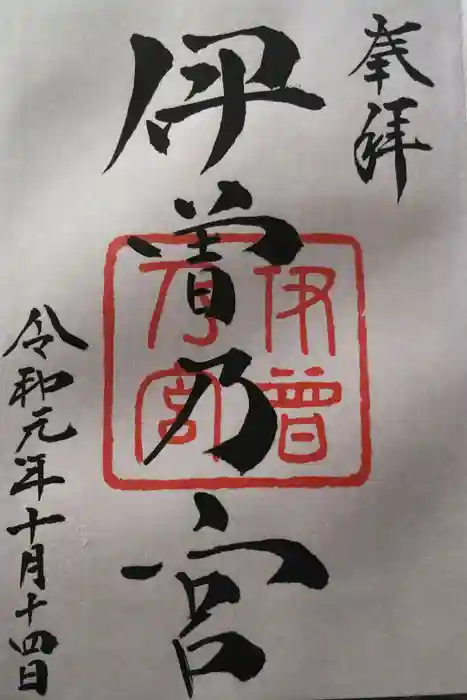 奉拝
伊曽乃宮
伊曽乃宮
令和元年十月十四日